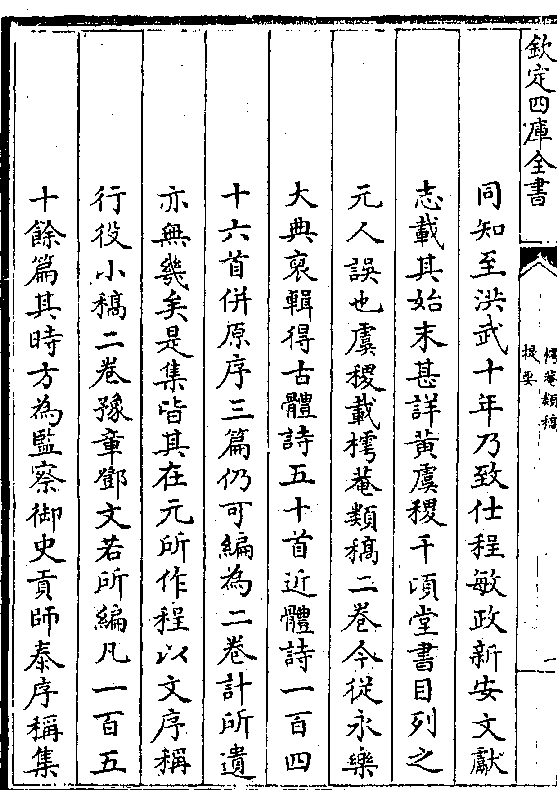 欽定四庫全書
樗菴類稿
提要
一
同知至洪武十年乃致仕程敏政新安文獻
志載其始末甚詳黄虞稷千頃堂書目列之
元人誤也虞稷載樗菴類稿二卷今從永樂
大典裒輯得古體詩五十首近體詩一百四
十六首併原序三篇仍可編為二卷計所遺
亦無幾矣是集皆其在元所作程以文序稱
行役小稿二卷豫章鄧文若所編凡一百五
十餘篇其時方為監察御史貢師泰序稱集